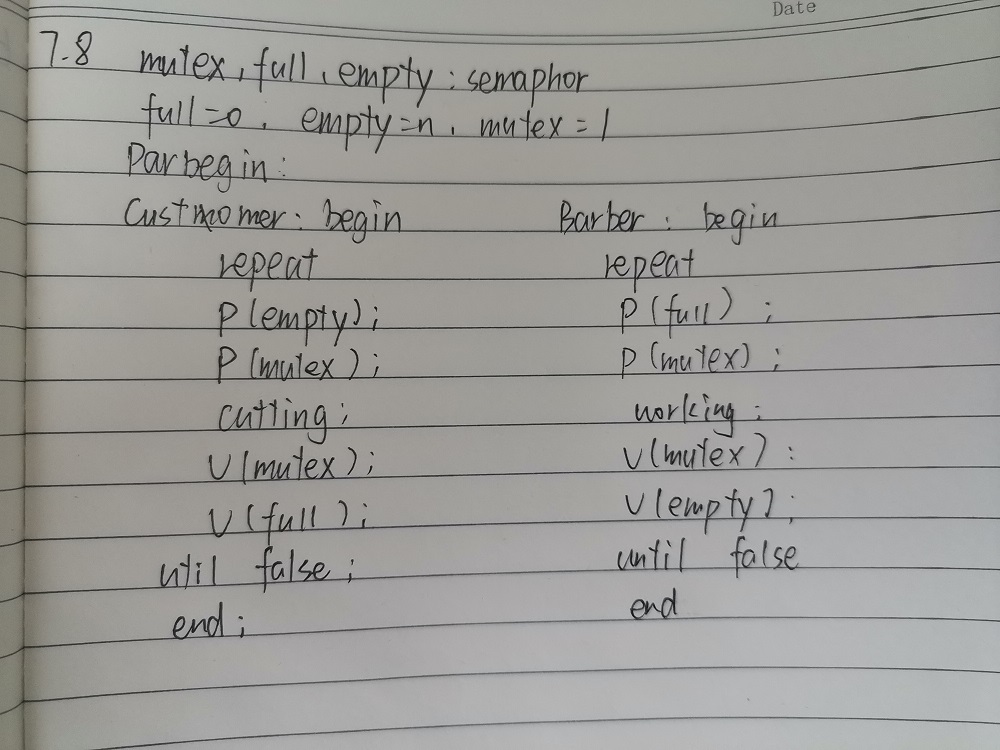 Date
7.8 mutex, full, empty : semaphor
full=0, empty=n, mutex=1
Parbegin:
Customer: begin
repeat
P(empty);
P(mutex);
cutting;
V(mutex);
V(full);
util false;
end;
Barber: begin
repeat
P(full);
P(mutex);
working;
V(mutex):
V(empty);
until false
end